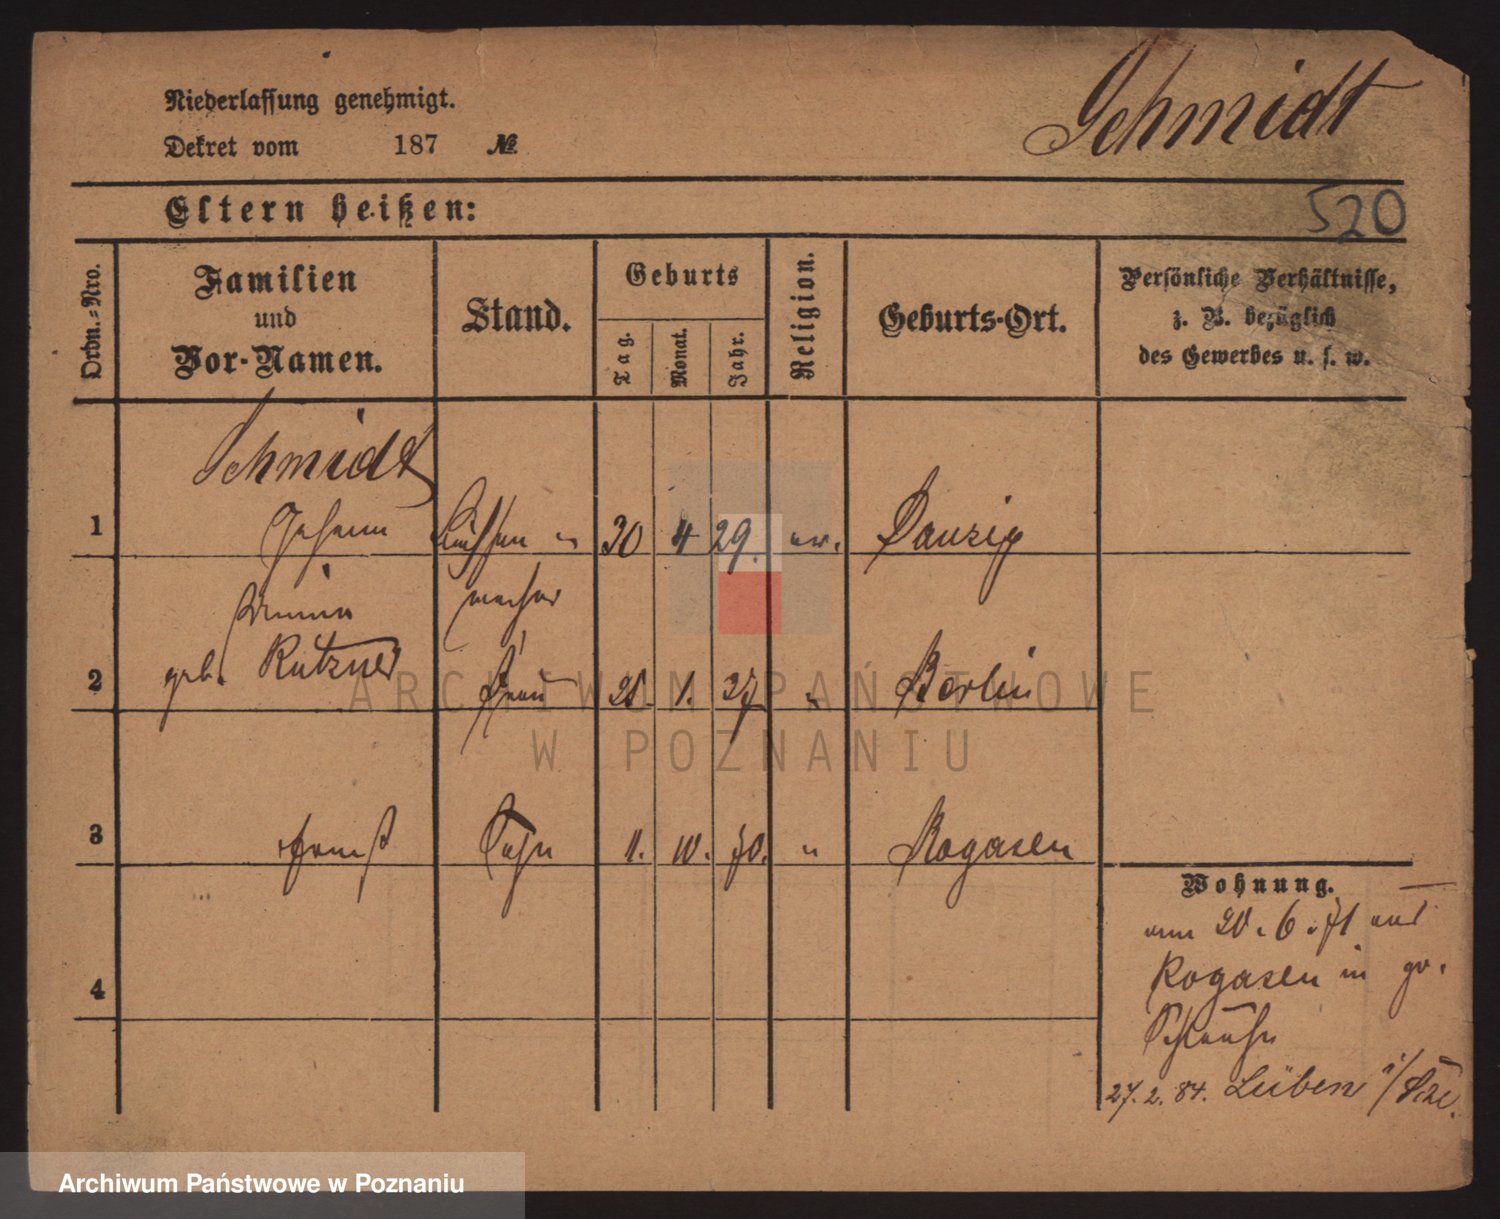 Niederlassung genehmigt.
Dekret vom 187 №
Schmidt
Eltern heißen:
520
Ordn.=Nro.
Familien
und
Vor-Namen.
Stand.
Geburts
Tag.
Monat.
Jahr.
Religion.
Geburts-Ort.
Persönliche Verhältnisse,
z. B. bezüglich
des Gewerbes u. s. w.
Schmidt
1 Johann 30 4 29. ev. Danzig
macher
geb. Rutzner
2 Frau 1. 27 " Berlin
3 Ernst Sohn 11. 10. 70. " Rogasen
Wohnung.
am 20. 6. 71 aus
Rogasen in gr.
4
27. 2. 84. Lüben i/Schl.
ARCHIWUM PAŃSTWOWE
W POZNANIU
Archiwum Państwowe w Poznaniu